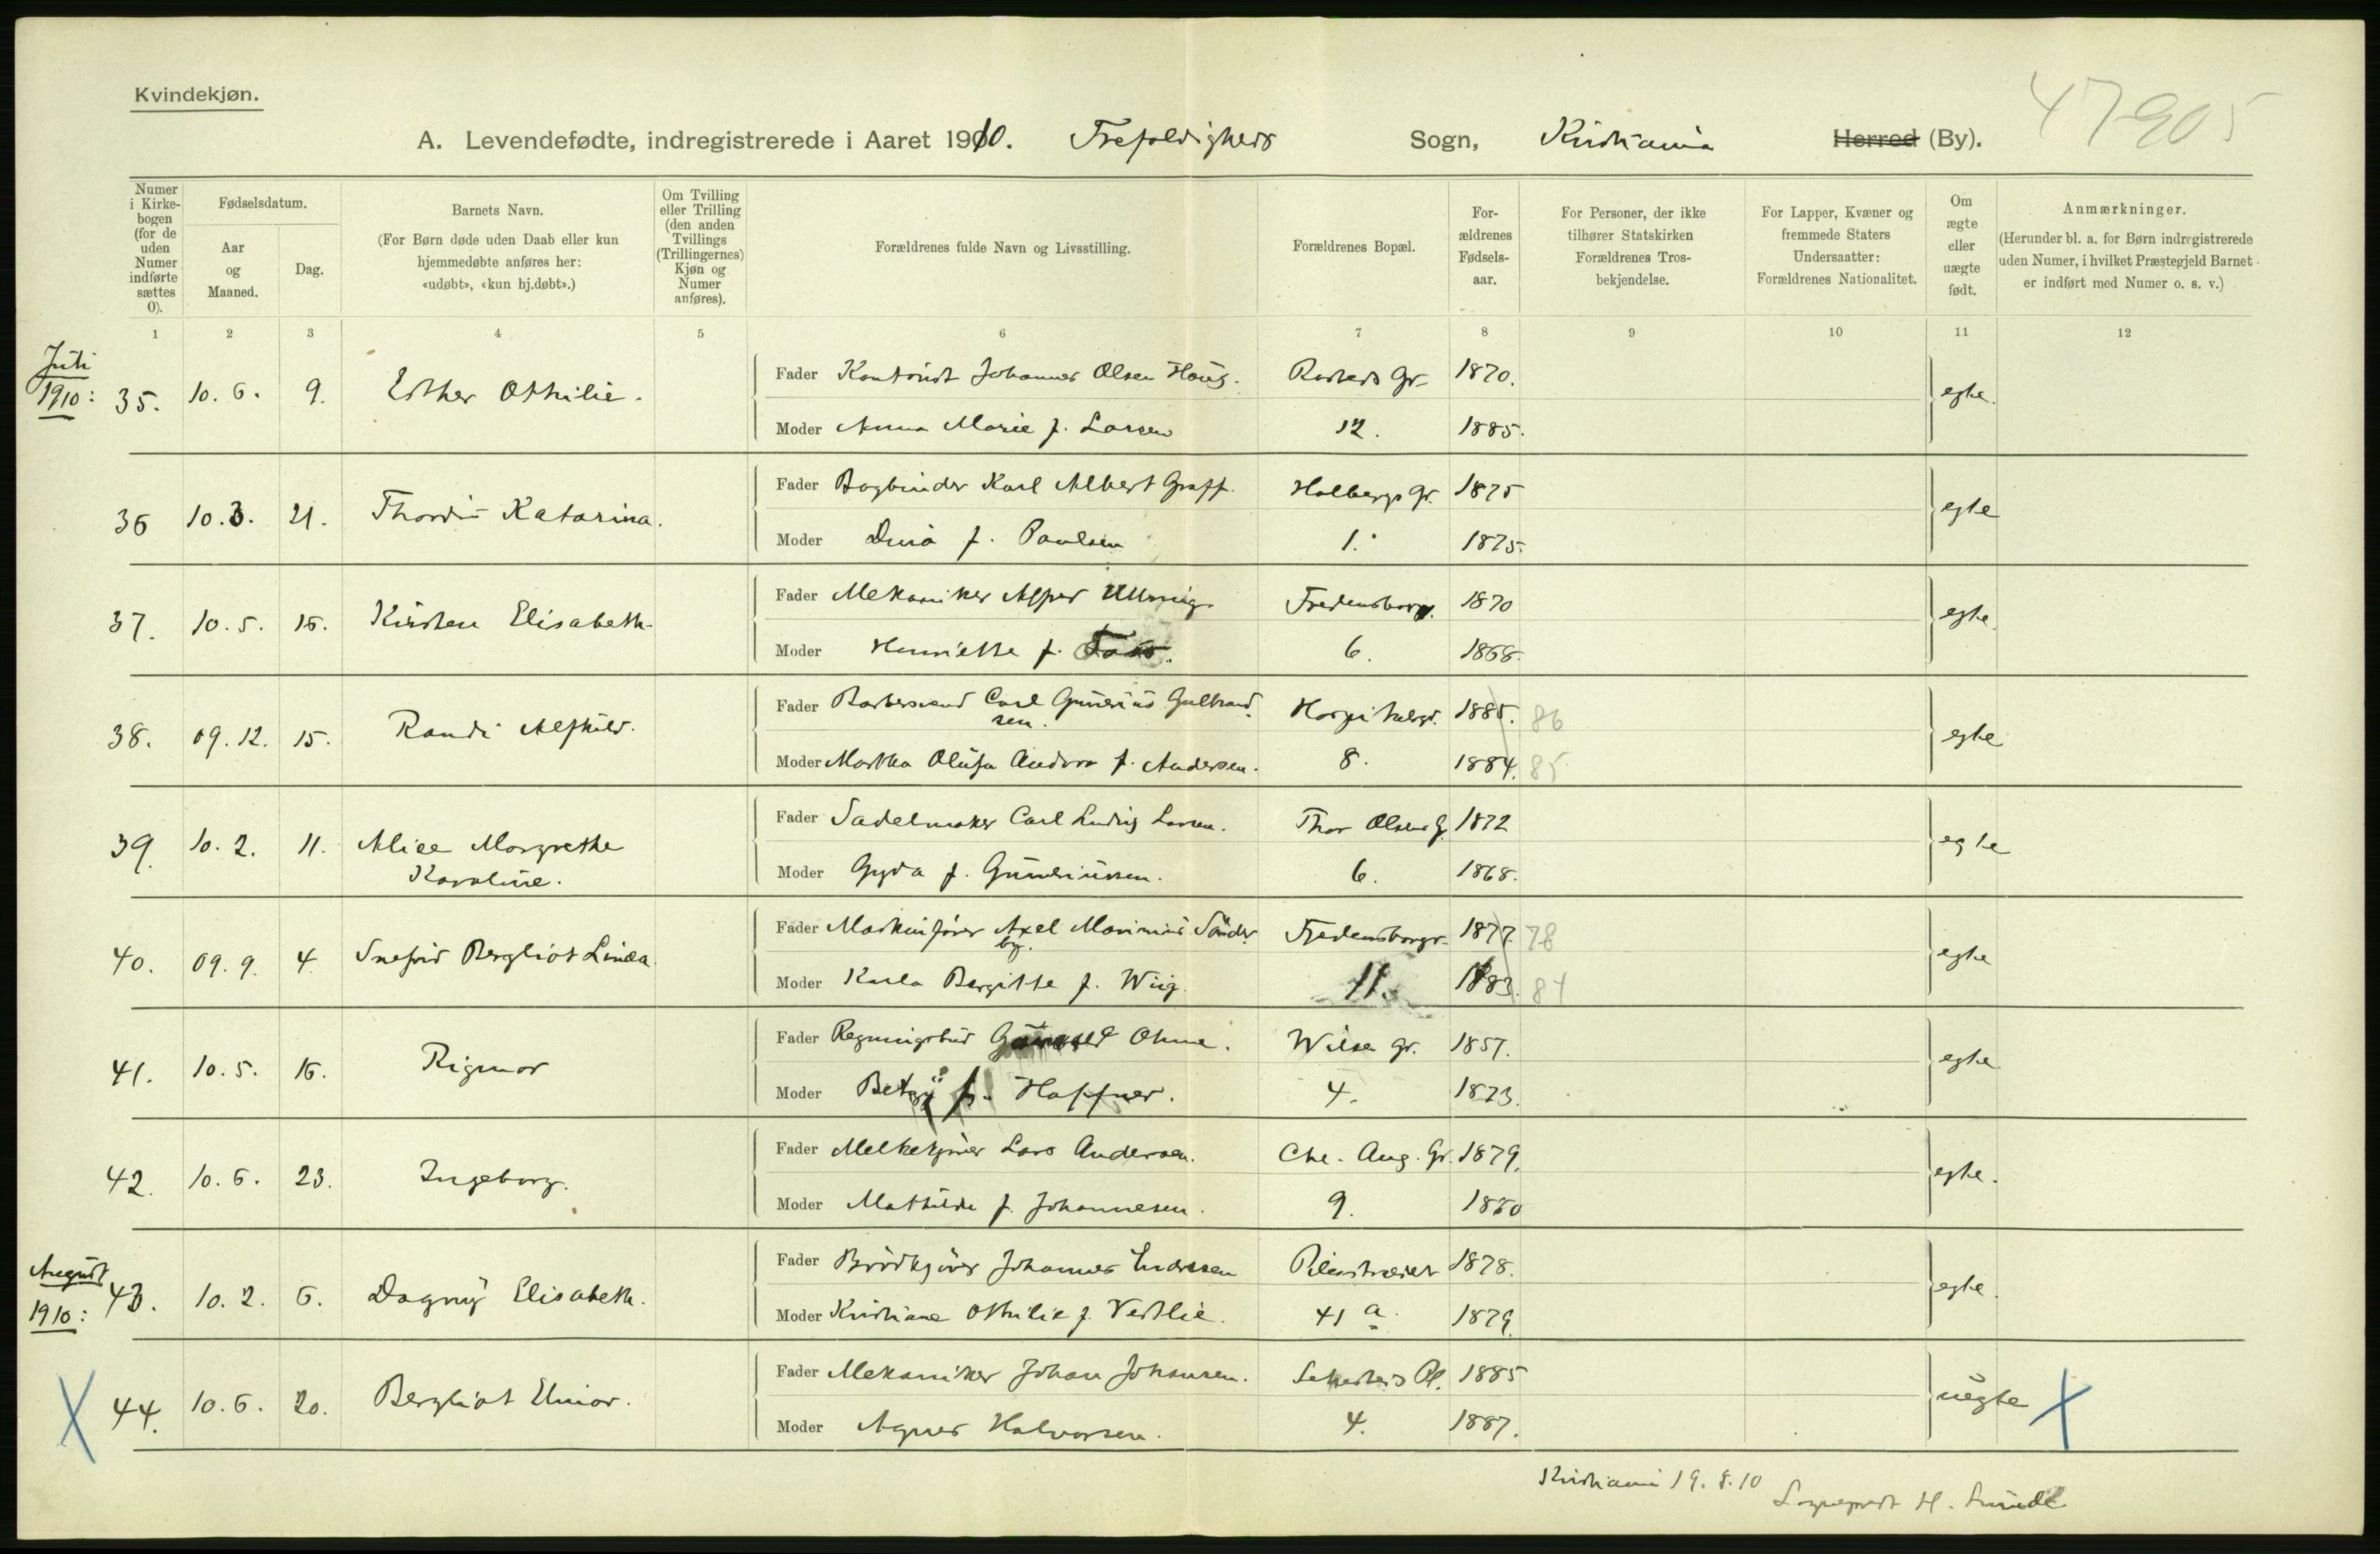 Kvindekjøn.
47905
A. Levendefødte, indregistrerede i Aaret 1910. Trefoldigheds Sogn, Kristiania Herred (By).
Numer i Kirkebogen (for de uden Numer indførte sættes 0).
Fødselsdatum.
Aar og Maaned.
Dag.
Barnets Navn.
(For Børn døde uden Daab eller kun hjemmedøbte anføres her: «udøbt», «kun hj.døbt».)
Om Tvilling eller Trilling (den anden Tvillings (Trillingernes) Kjøn og Numer anføres).
Forældrenes fulde Navn og Livsstilling.
Forældrenes Bopæl.
Forældrenes Fødselsaar.
For Personer, der ikke tilhører Statskirken Forældrenes Trosbekjendelse.
For Lapper, Kvæner og fremmede Staters Undersaatter: Forældrenes Nationalitet.
Om ægte eller uægte født.
Anmærkninger.
(Herunder bl. a. for Børn indregistrerede uden Numer, i hvilket Præstegjeld Barnet er indført med Numer o. s. v.)
1 2 3 4 5 6 7 8 9 10 11 12
Juli 1910:
35. 10. 6. 9. Esther Othilie. Fader Kontorist Johannes Olsen Haug. Rosteds Gr. 1870. egte.
Moder Anna Marie f. Larsen 12. 1885.
36 10. 3. 21. Thordis Katarina. Fader Bogbinder Karl Albert Graff. Holbergs Gr. 1875 egte
Moder f. Paulsen 1. 1875.
37. 10. 5. 15. Kirsten Elisabeth. Fader Mekaniker Fredensborgv. 1870 egte.
Moder Henriette f. 6. 1868.
38. 09. 12. 15. Randi Alfhild. Fader Barbersvend Carl Gunerius Gulbrandsen. Hospitalsgr. 1885. 86 egte
Moder Martha Olufa Andora f. Andersen. 8. 1884. 85
39. 10. 2. 11. Alice Margrethe Karoline. Fader Sadelmaker Carl Ludvig Larsen. Thor Olsens G. 1872 egte
Moder Gyda f. Gunveriussen. 6. 1868.
40. 09. 9. 4. Snefrid Bergliot Linda. Fader Maskinfører Axel Marinius Sønderby. Fredensborgv. 1877. 78 egte
Moder Karla Bergitte f. Wiig. 11. 1883. 84
41. 10. 5. 16. Rigmor Fader Regningsbud Ohme. Wilses Gr. 1857. egte
Moder Betzy f. Haffner. 4. 1873.
42. 10. 6. 23. Ingeborg. Fader Melkekjører Lars Andersen. Chr. Aug. Gr. 1879. egte.
Moder Mathilde f. Johannesen. 9. 1880
August 1910:
43. 10. 2. 6. Dagny Elisabeth. Fader Brødkjører Johannes Endresen Pilestrædet 1878. egte.
Moder Kristiane Othilie f. Vestlie. 41 a. 1879.
44. 10. 6. 20. Bergliot Elinor. Fader Mekaniker Johan Johansen. Sehesteds Pl. 1885 uegte
Moder Agnes Halvorsen. 4. 1887.
Kristiania 19. 8. 10
Sogneprest H.